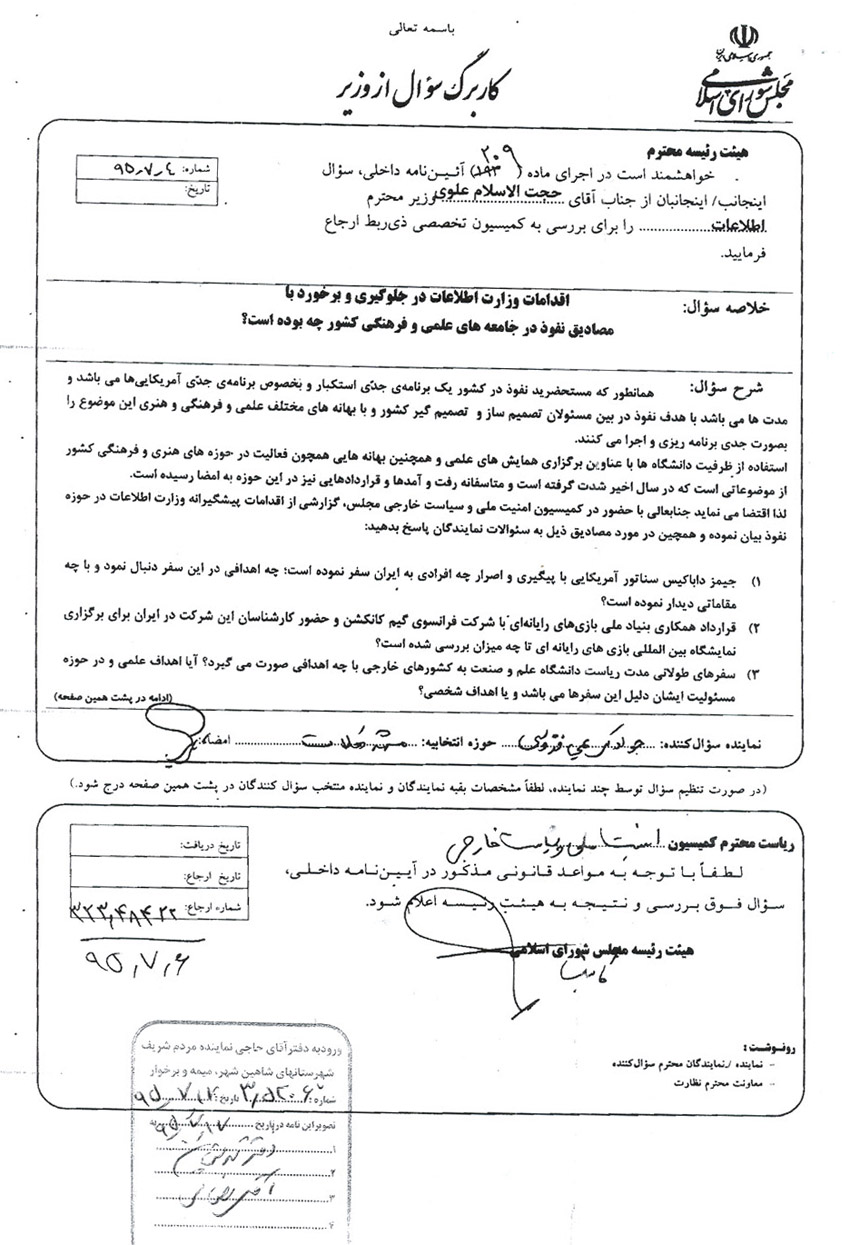 باسمه تعالی
جمهوری اسلامی ایران
مجلس شورای اسلامی
کاربرگ سؤال از وزیر
هیئت رئیسه محترم
خواهشمند است در اجرای ماده (۱۹۳) ۲۰۹ آئین‌نامه داخلی، سؤال
اینجانب/ اینجانبان از جناب آقای حجت الاسلام علوی وزیر محترم
اطلاعات را برای بررسی به کمیسیون تخصصی ذی‌ربط ارجاع
فرمایید.
شماره: ۹۵.۷.۴
تاریخ:
خلاصه سؤال: اقدامات وزارت اطلاعات در جلوگیری و برخورد با
مصادیق نفوذ در جامعه های علمی و فرهنگی کشور چه بوده است؟
شرح سؤال: همانطور که مستحضرید نفوذ در کشور یک برنامه‌ی جدّی استکبار و بخصوص برنامه‌ی جدّی آمریکایی‌ها می باشد و
مدت ها می باشد با هدف نفوذ در بین مسئولان تصمیم ساز و تصمیم گیر کشور و با بهانه های مختلف علمی و فرهنگی و هنری این موضوع را
بصورت جدی برنامه ریزی و اجرا می کنند.
استفاده از ظرفیت دانشگاه ها با عناوین برگزاری همایش های علمی و همچنین بهانه هایی همچون فعالیت در حوزه های هنری و فرهنگی کشور
از موضوعاتی است که در سال اخیر شدت گرفته است و متاسفانه رفت و آمدها و قراردادهایی نیز در این حوزه به امضا رسیده است.
لذا اقتضا می نماید جنابعالی با حضور در کمیسیون امنیت ملی و سیاست خارجی مجلس، گزارشی از اقدامات پیشگیرانه وزارت اطلاعات در حوزه
نفوذ بیان نموده و همچنین در مورد مصادیق ذیل به سئوالات نمایندگان پاسخ بدهید:
۱) جیمز داباکیس سناتور آمریکایی با پیگیری و اصرار چه افرادی به ایران سفر نموده است؛ چه اهدافی در این سفر دنبال نمود و با چه
مقاماتی دیدار نموده است؟
۲) قرارداد همکاری بنیاد ملی بازی‌های رایانه‌ای با شرکت فرانسوی گیم کانکشن و حضور کارشناسان این شرکت در ایران برای برگزاری
نمایشگاه بین المللی بازی های رایانه ای تا چه میزان بررسی شده است؟
۳) سفرهای طولانی مدت ریاست دانشگاه علم و صنعت به کشورهای خارجی با چه اهدافی صورت می گیرد؟ آیا اهداف علمی و در حوزه
مسئولیت ایشان دلیل این سفرها می باشد و یا اهداف شخصی؟
(ادامه در پشت همین صفحه)
نماینده سؤال‌کننده: جواد کریمی قدوسی حوزه انتخابیه: مشهد و کلات امضاء:
(در صورت تنظیم سؤال توسط چند نماینده، لطفاً مشخصات بقیه نمایندگان و نماینده منتخب سؤال کنندگان در پشت همین صفحه درج شود.)
ریاست محترم کمیسیون امنیت ملی و سیاست خارجی
لطفاً با توجه به مواعد قانونی مذکور در آیین‌نامه داخلی،
سؤال فوق بررسی و نتیجه به هیئت رئیسه اعلام شود.
هیئت رئیسه مجلس شورای اسلامی
تاریخ دریافت:
تاریخ ارجاع:
شماره ارجاع:
۹۵،۷،۶
رونوشت:
- نماینده /نمایندگان محترم سؤال‌کننده
- معاونت محترم نظارت
ورود به دفتر آقای حاجی نماینده مردم شریف
شهرستانهای شاهین شهر، میمه و برخوار
شماره: تاریخ:
تصویر این نامه در تاریخ به
۱
۲
۳
۴